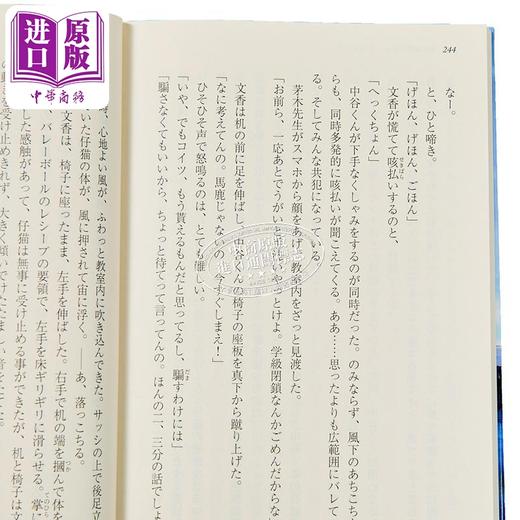 进口
原版
中华商务
244
なー。
と、ひと啼き。
「げほん、げほん、ごほん」
文香が慌てて咳払いするのと、
せきばら
「へっくちょん」
中谷くんが下手なくしゃみをするのが同時だった。のみならず、風下のあちこち
らも、同時多発的に咳払いが聞こえてくる。ああ……思ったよりも広範囲にバレて
る。そしてみんな共犯になっている。
茅木先生がスマホから顔をあげ、教室内をざっと見渡した。
「お前ら、一応あとでうがいと
とけよ。学級閉鎖なんかごめんだからな
文香は机の前に足を伸ばし、中谷くんの椅子の座板を真下から蹴り上げた。
「なに考えてんの。馬鹿じゃない
今すぐしまえ!」
ひそひそ声で怒鳴るのは、とても難しい。
「いや、でもコイツ、もう貰えるもんだと思ってるし、騙すわけには」
だま
「騙さなくてもいいから、ちょっと待てって言ってんの。ほんの二、三分の話でしょ
、心地よい風が、ふわっと教室内に吹き込んできた。サッシの上で後足立
いた仔猫の体が、風に押されて宙に浮く。――あ、落っこちる。
文香は、椅子に座ったまま、左手を伸ばした。右手で机の端を摑んで体を
つか
、バレーボールのレシーブの要領で、左手を床ギリギリに滑らせる。掌に
てのひら
した感触があって、仔猫は無事に受け止める事ができたが、机と椅子は文
の動きを受け止めきれず、大きく傾いでけたたましい音をたてた。